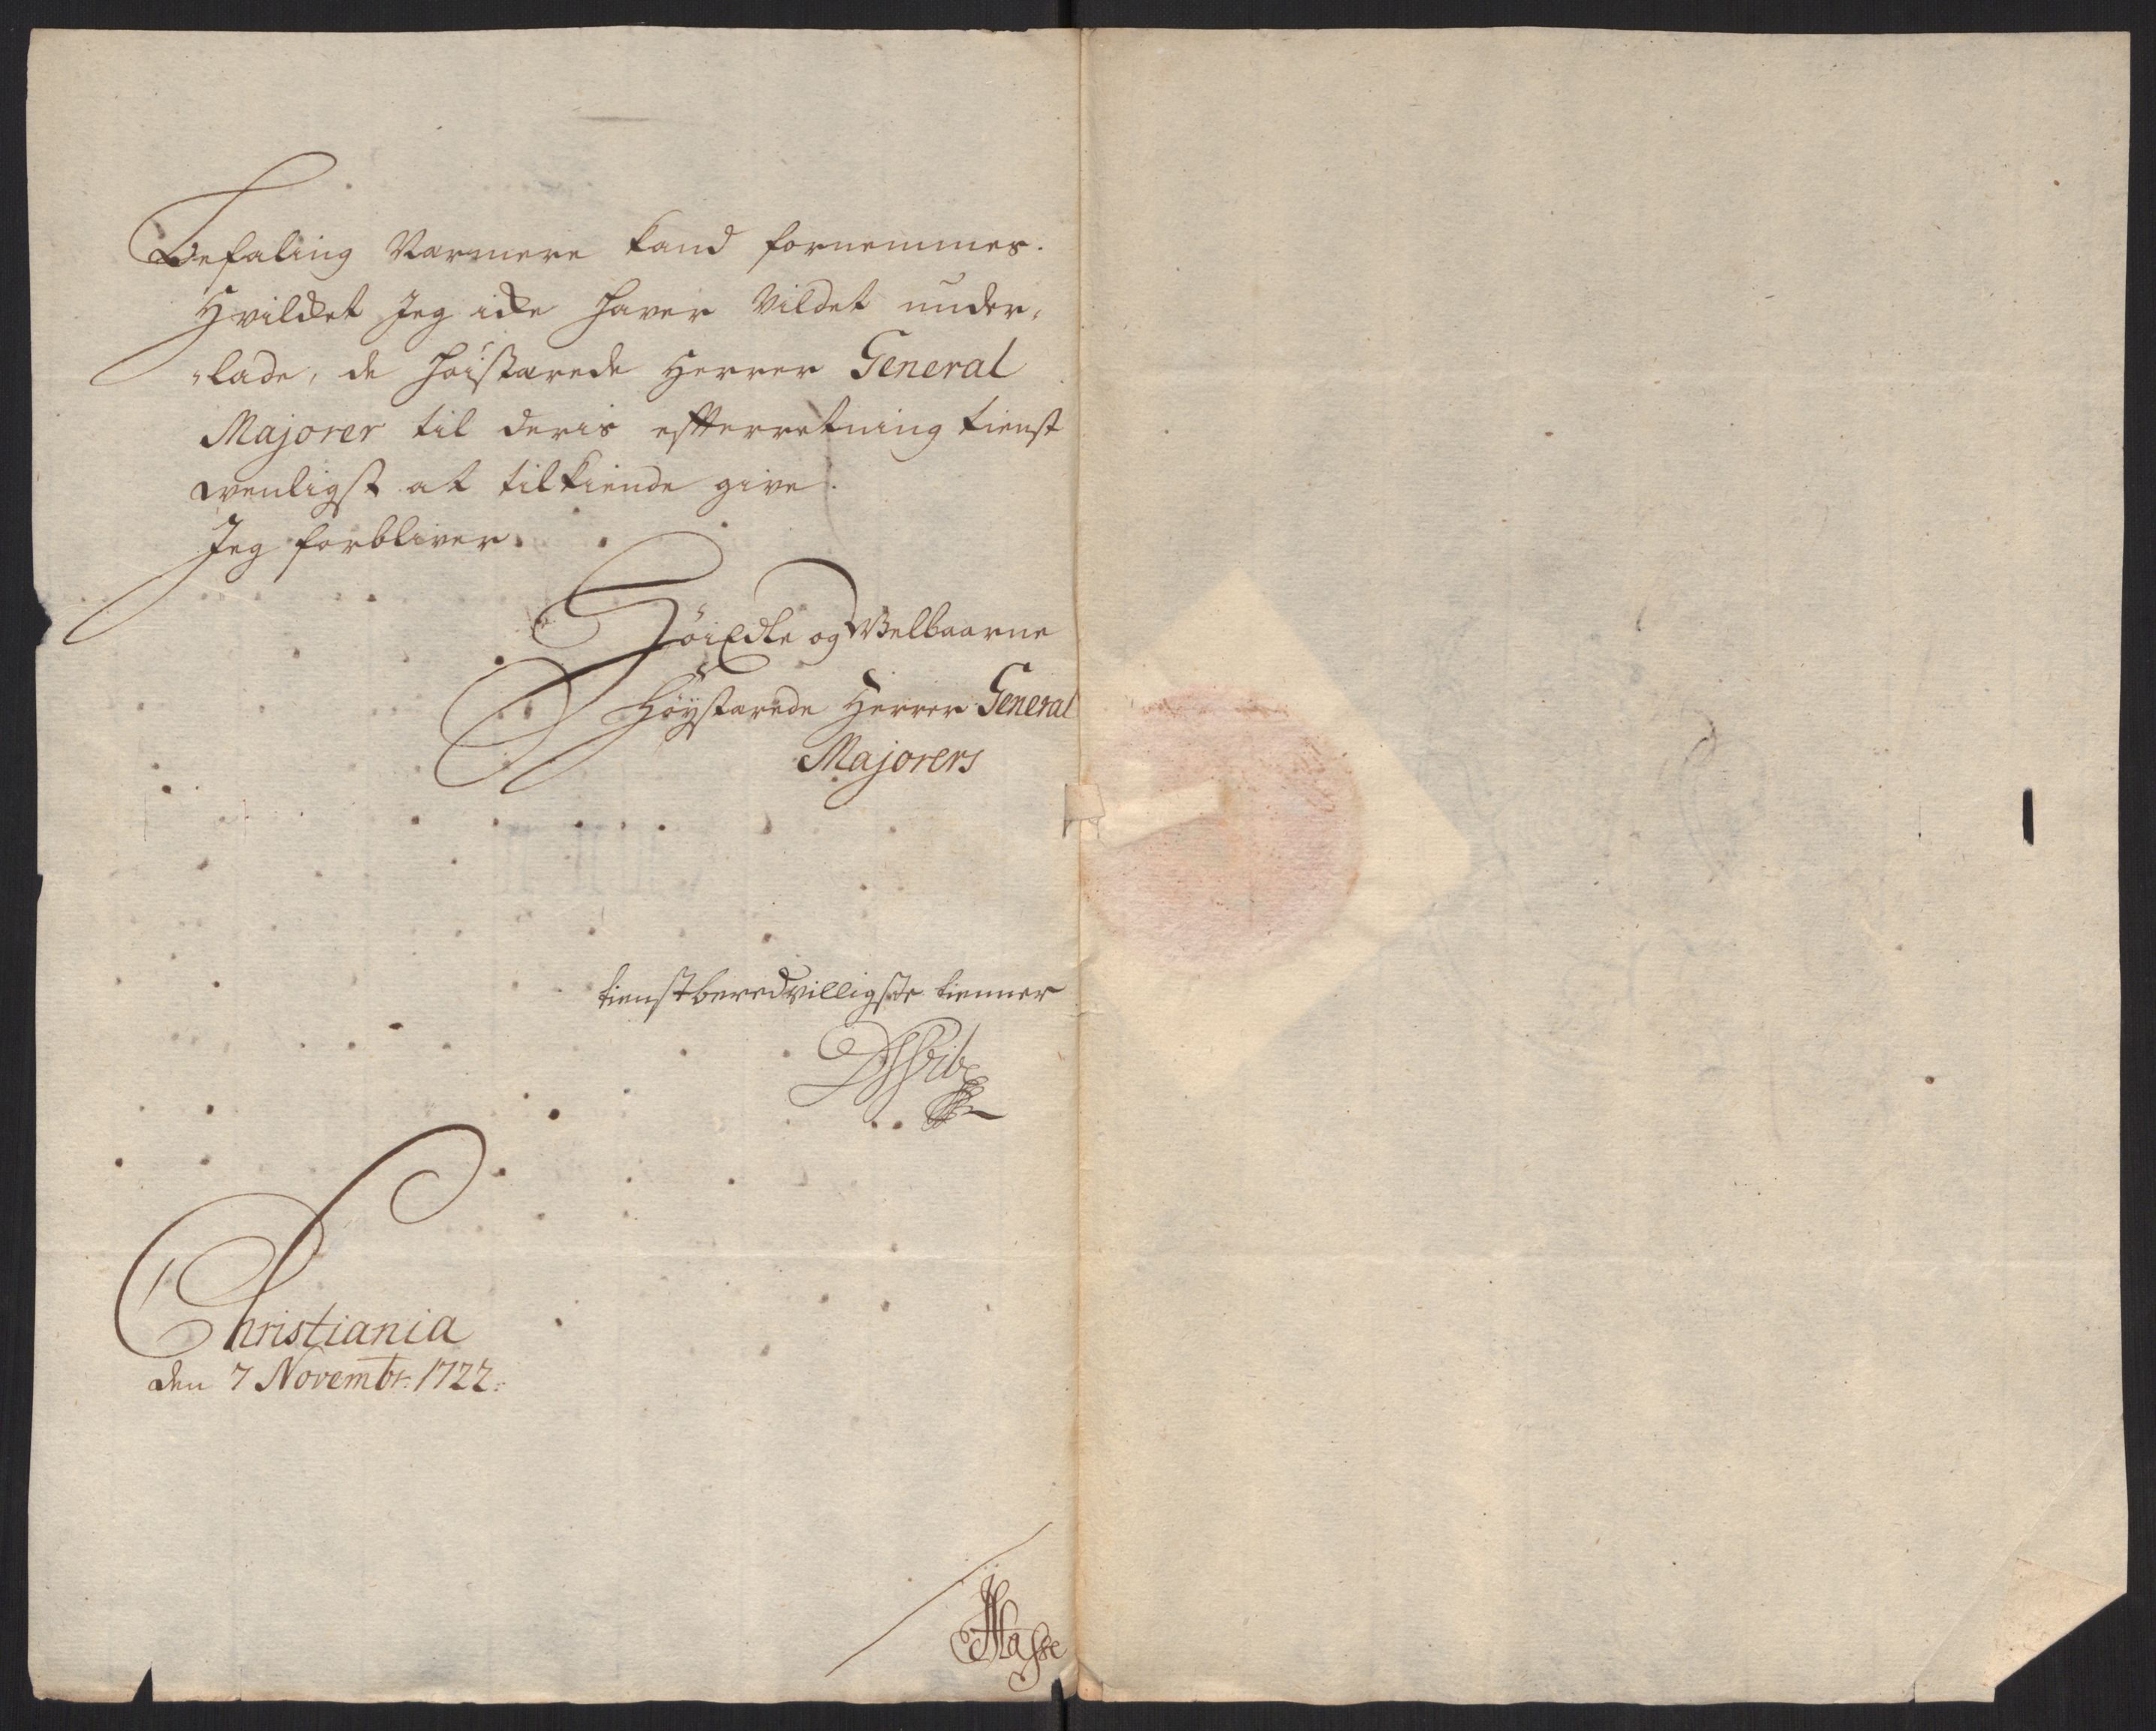 Befaling Narmere kand fornemmes.
Hvilcket Jeg icke haver vildet under,
„lade, de Høistærede Herrer General
Majorer til deris efterretning tienst
venligst at tilkiende give.
Jeg forbliver
HøiEdle og Velbaarne
Høystærede Herrer General
Majorers
tienstberedvilligste tienner
DVibe
Christiania
den 7 Novembr: 1722.